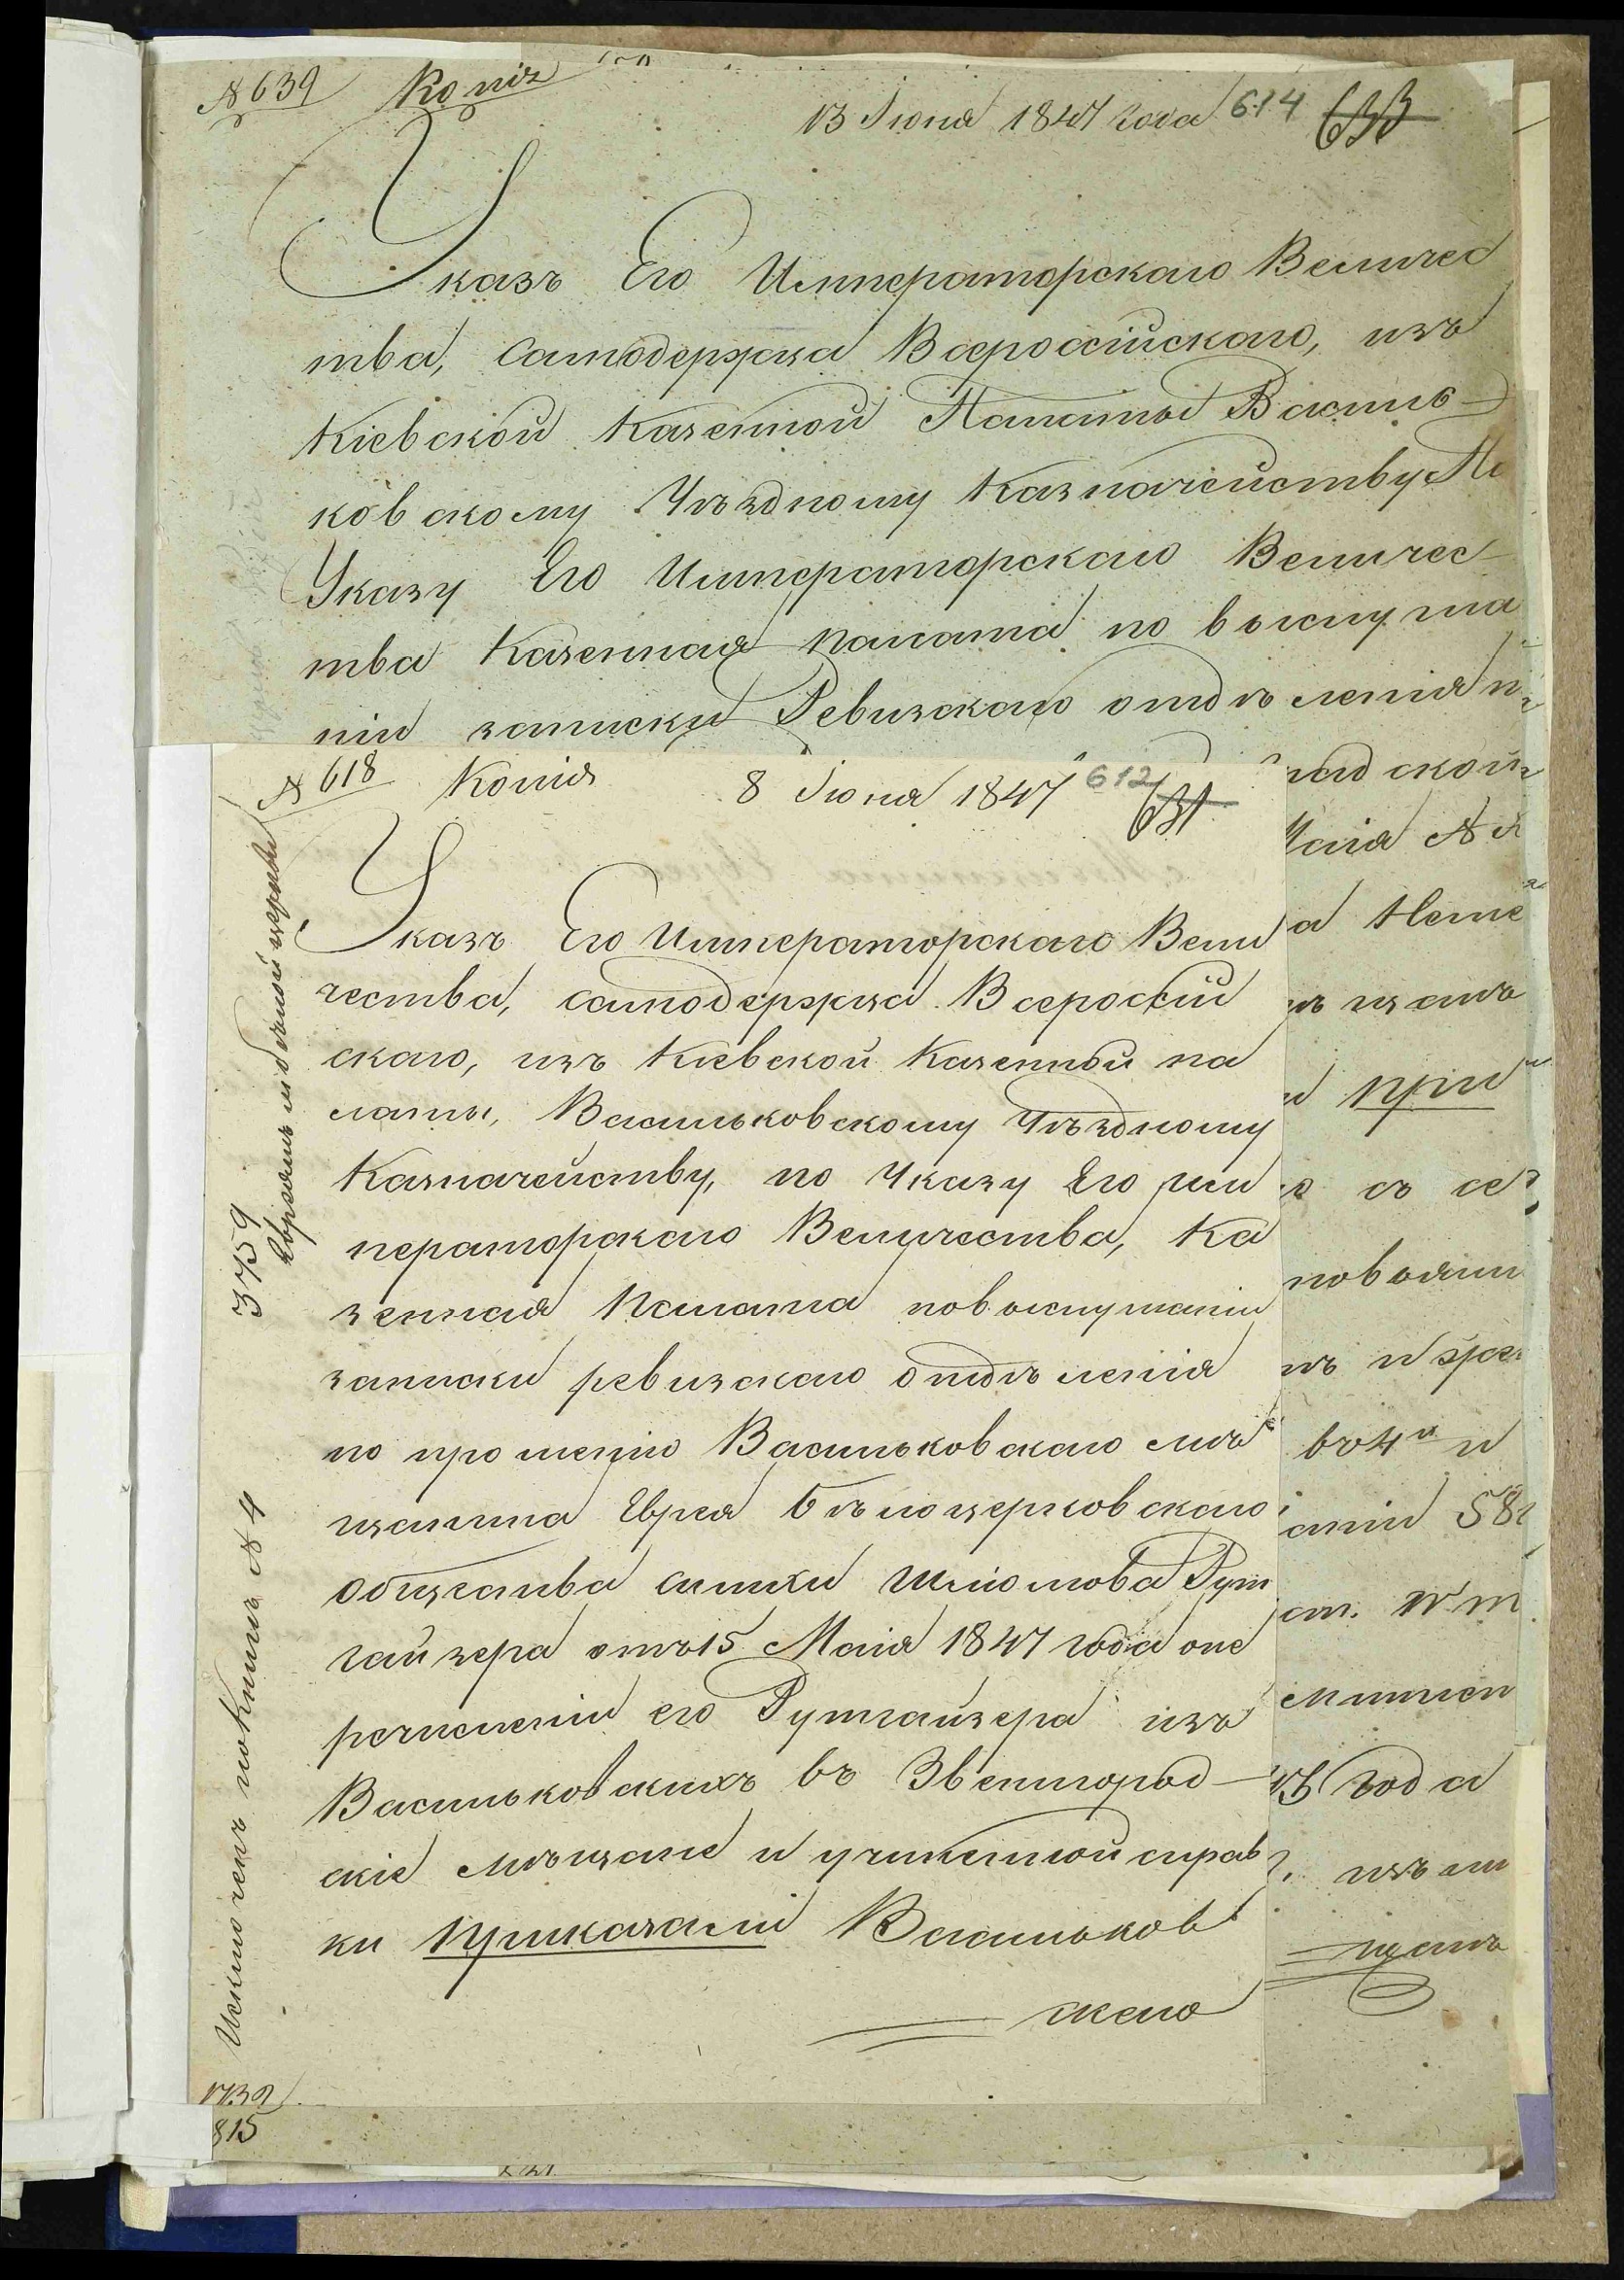 № 639 Копія
13 Іюня 1847 года 614 633
Указъ Его Императорскаго Величес
тва, Самодержца Всероссійскаго, изъ
Кіевской Казенной Палаты Василь-
ковскому Уѣздному Казначейству По
Указу Его Императорскаго Величес-
тва Казенная палата по выслуша
ніи записки Ревизскаго отдѣленія п
№ 618 Копія 8 Іюня 1847 612 631
Указъ Его Императорскаго Вели
чества, самодержца Всероссій
скаго, изъ Кіевской Казенной па
латы, Васильковскому Уѣздному
Казначейству, по Указу Его Им
ператорскаго Величества, Ка
зенная Палата повыслушаніи
записки ревизскаго отдѣленія
по прошенію Васильковскаго мѣ
щанина Еврея Бѣлоцерковскаго
общества Шлiомова Рут
гайзера отъ 15 Маія 1847 года опе
речисленіи его Рутгайзера изъ
Васильковскихъ въ Звенигород-
скіе мѣщане и учиненной справ
ки приказали Васильков
ского
надской
Маія №
а
при
съ се
повоями
въ 4й и
аніи 58
ст. IV т
года
щанъ
3759
Евреямъ мѣ церкви
Исключенъ покнигѣ № 4
1739
815